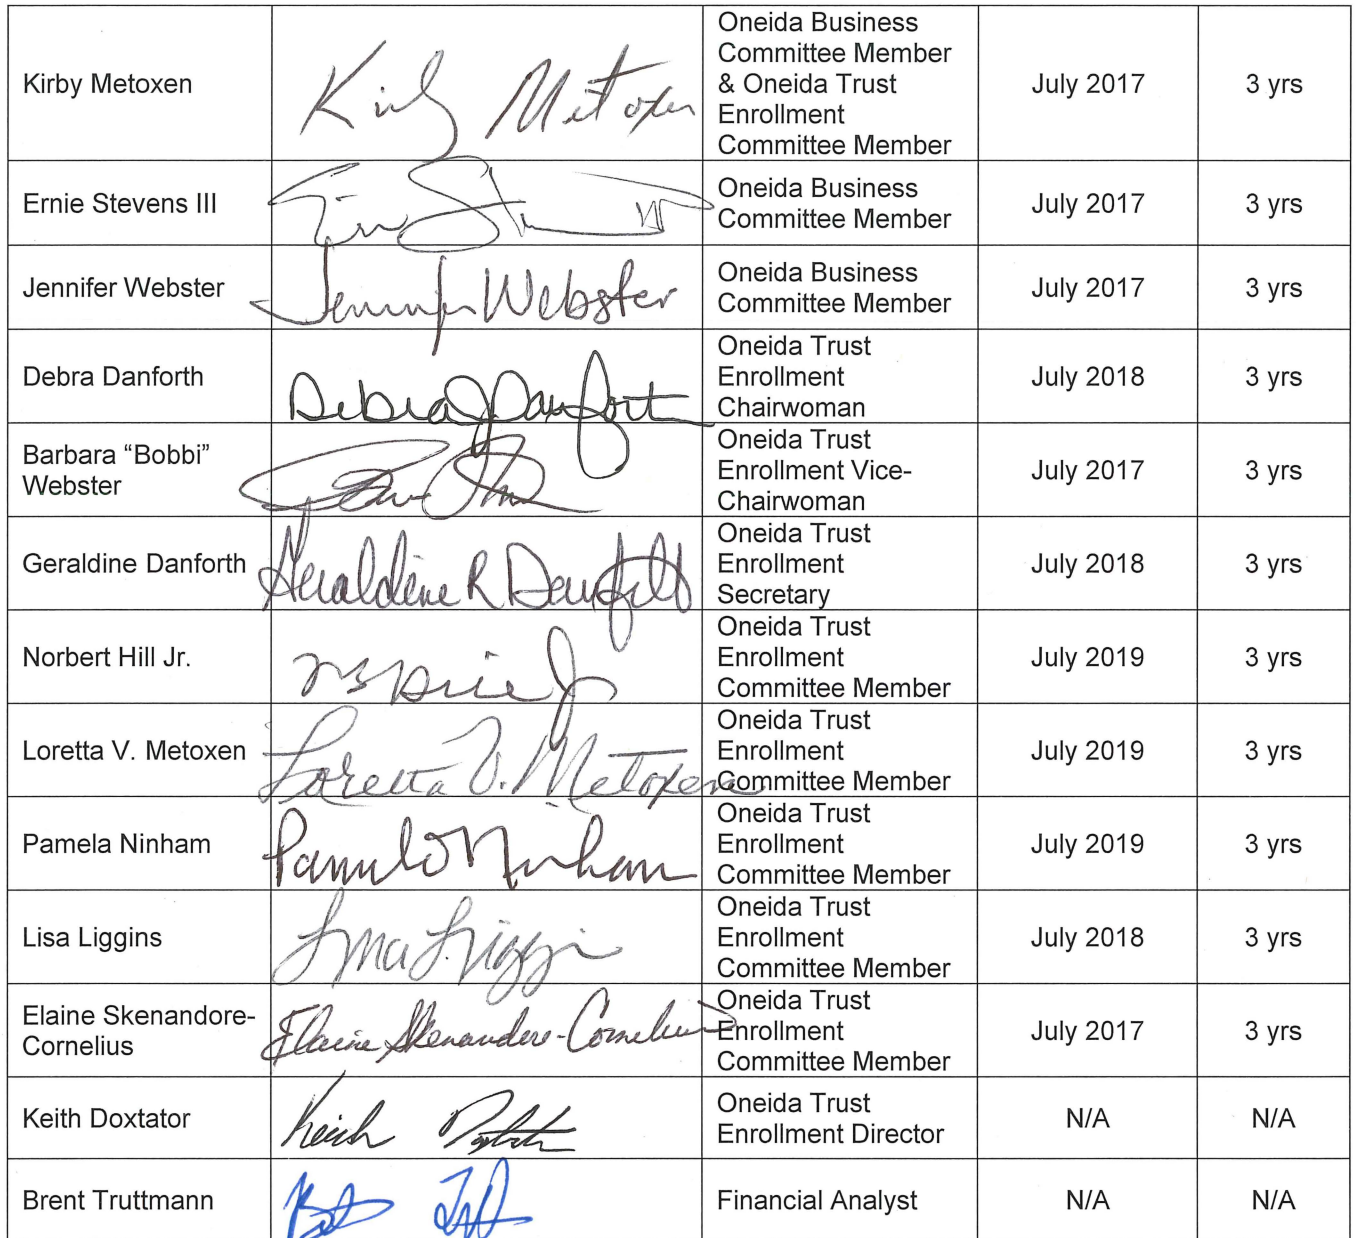 Kirby Metoxen
Kirby Metoxen
Oneida Business
Committee Member
& Oneida Trust
Enrollment
Committee Member
July 2017
3 yrs
Ernie Stevens III
Oneida Business
Committee Member
July 2017
3 yrs
Jennifer Webster
Jennifer Webster
Oneida Business
Committee Member
July 2017
3 yrs
Debra Danforth
Debra J Danforth
Oneida Trust
Enrollment
Chairwoman
July 2018
3 yrs
Barbara “Bobbi”
Webster
Oneida Trust
Enrollment Vice-
Chairwoman
July 2017
3 yrs
Geraldine Danforth
Geraldine R Danforth
Oneida Trust
Enrollment
Secretary
July 2018
3 yrs
Norbert Hill Jr.
Oneida Trust
Enrollment
Committee Member
July 2019
3 yrs
Loretta V. Metoxen
Loretta V. Metoxen
Oneida Trust
Enrollment
Committee Member
July 2019
3 yrs
Pamela Ninham
Pamela Ninham
Oneida Trust
Enrollment
Committee Member
July 2019
3 yrs
Lisa Liggins
Lisa Liggins
Oneida Trust
Enrollment
Committee Member
July 2018
3 yrs
Elaine Skenandore-
Cornelius
Elaine Skenandore-Cornelius
Oneida Trust
Enrollment
Committee Member
July 2017
3 yrs
Keith Doxtator
Keith Doxtator
Oneida Trust
Enrollment Director
N/A
N/A
Brent Truttmann
Financial Analyst
N/A
N/A